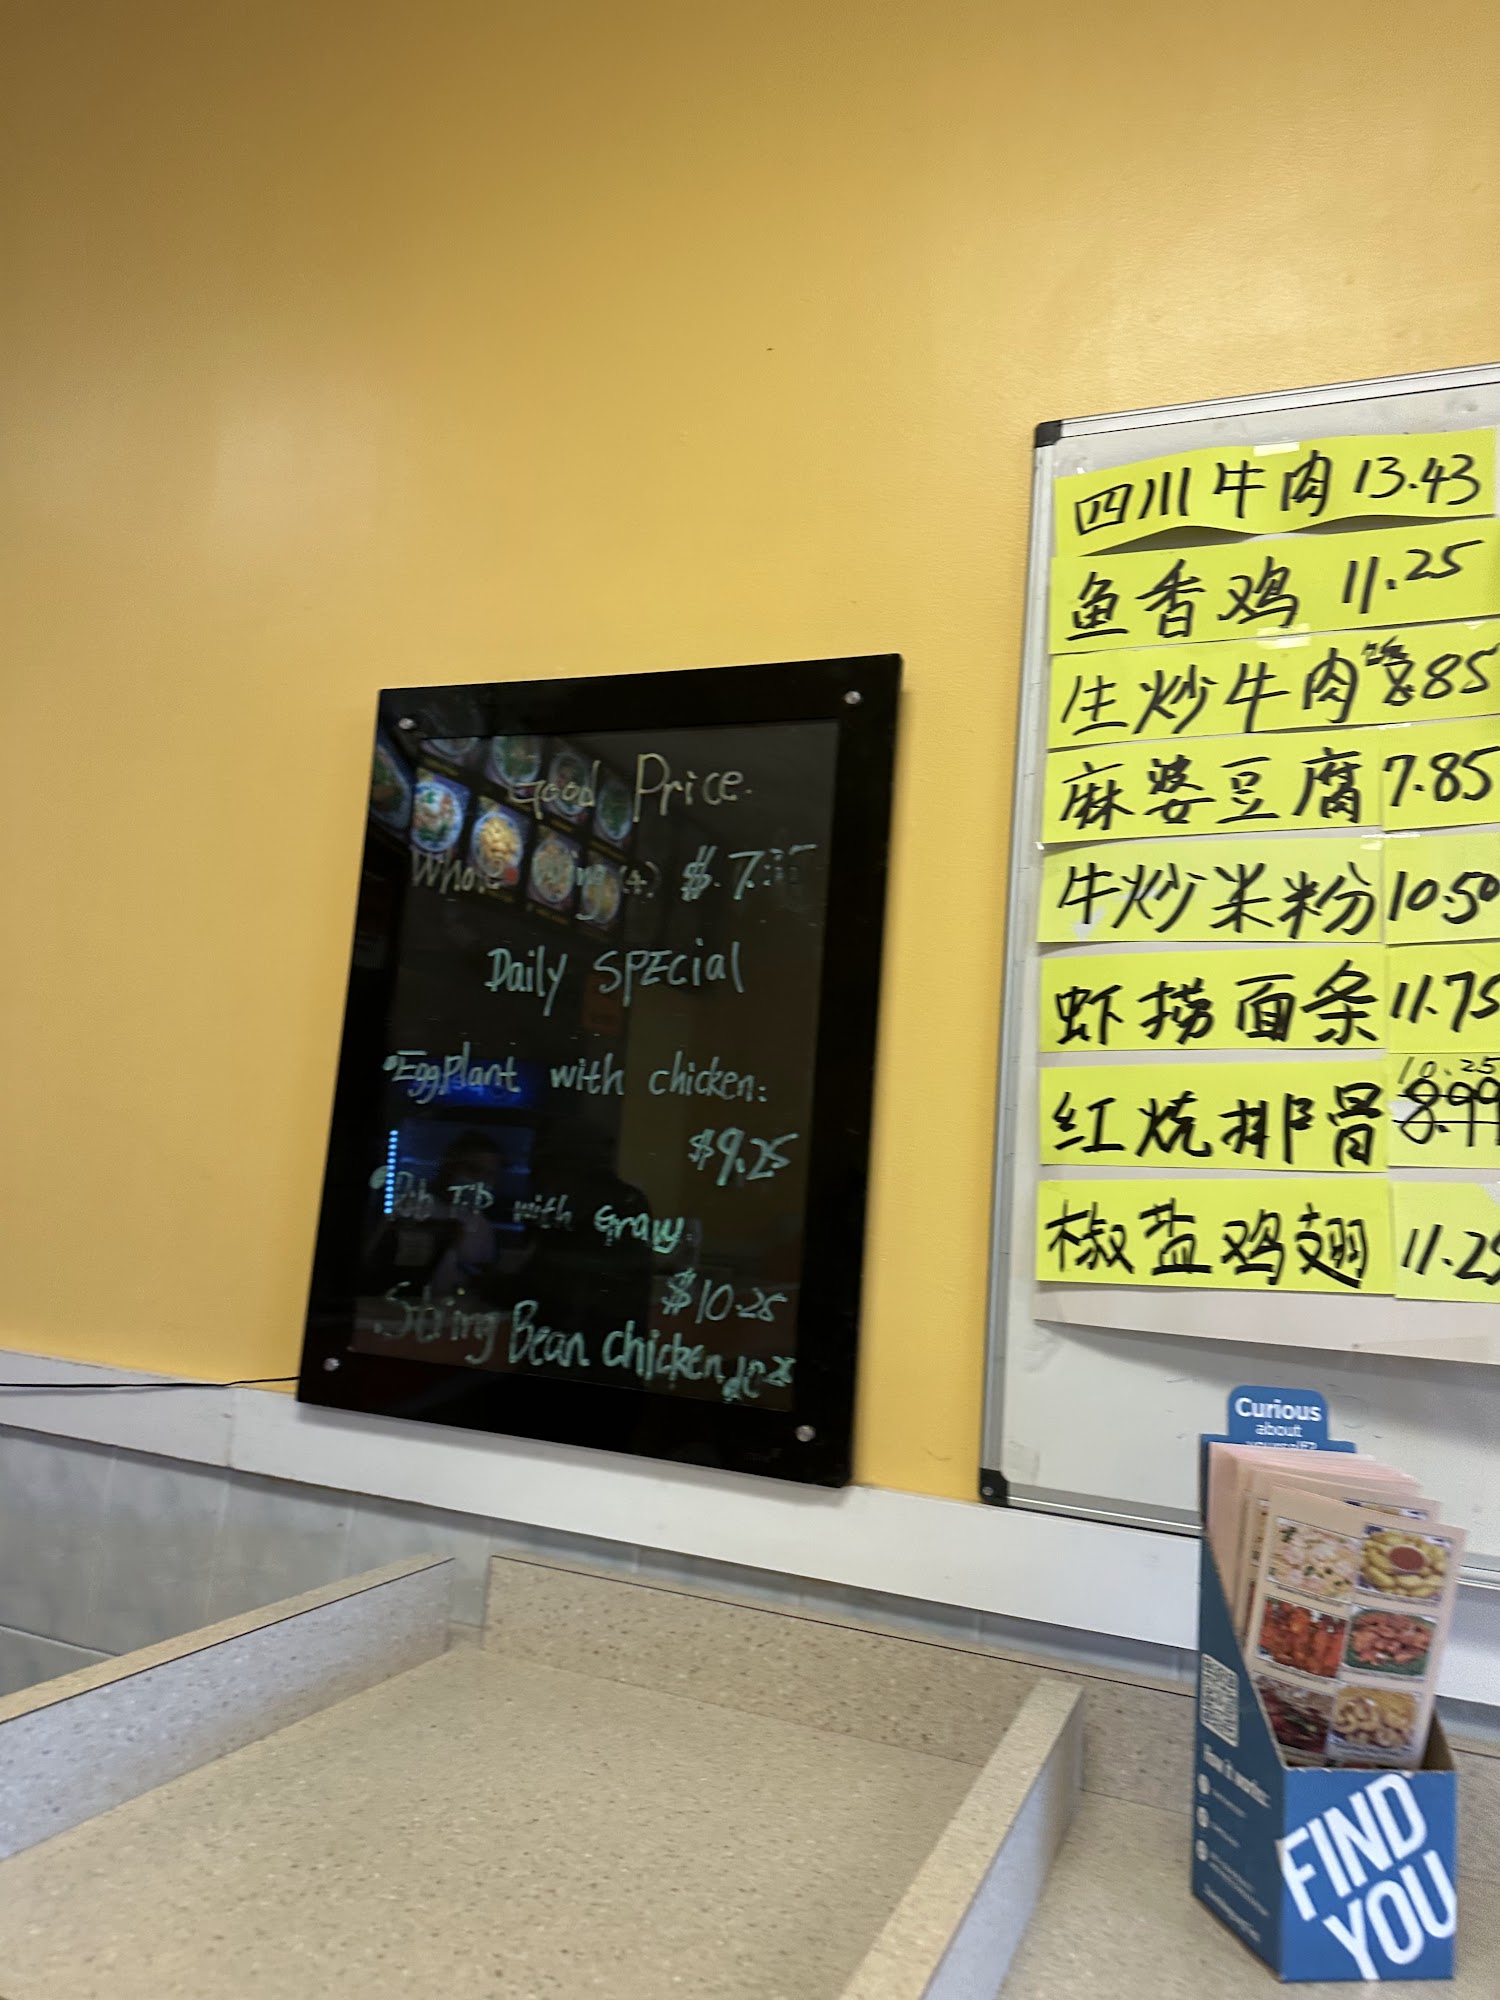 Good Price.
Whole Wing (4.) $.7.
Daily SPECial
•EggPlant with chicken:
$9.25
•Rib TiP with Gravy.
$10.25
.String Bean chicken 10.25
四川牛肉 13.43
鱼香鸡 11.25
生炒牛肉 8.85
麻婆豆腐 7.85
牛炒米粉 10.50
虾捞面条 11.75
10.25
红烧排骨 8.99
椒盐鸡翅 11.25
Curious
about
yourself?
How it works:
FIND
YOU